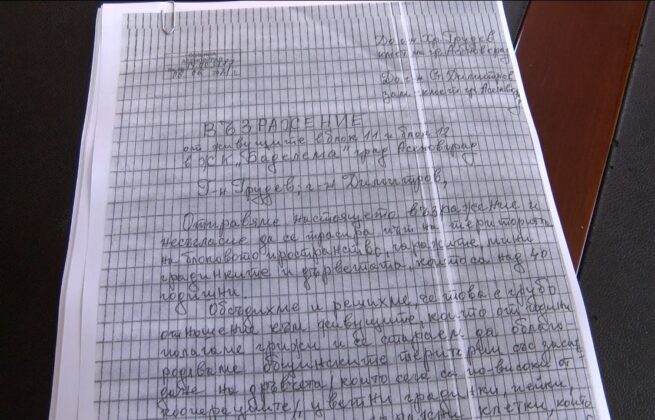 До г-н Хр. Грудев
кмет на гр. Асеновград
До г-н Ст. Димитров
зам.-кмет гр. Асеновград
ВЪЗРАЖЕНИЕ
от живущите в блок 11 и блок 12
в Ж.К. "Баделема" град Асеновград
Г-н Грудев; г-н Димитров,
Отправяме настоящето възражение и
несъгласие да се трасира път на територията
на блоковото пространство, гаражите мини
градинките и дърветата, които са над 40
годишни.
Обсъдихме и решихме, че това е грубо
отношение към живущите, които от години
полагаме грижи и се стараем да облаго-
родяваме общинските територии със заса-
даже на дръвчета / които сега са по-високи от
кооперациите /, цветни градинки, пейки
които